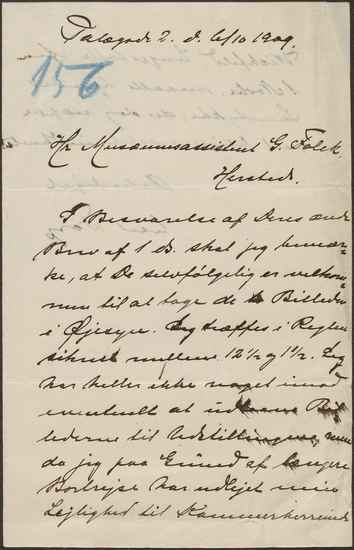 Talegade 2. d. 6/10 1909.
156
Hr Museumsassistent G. Falck,
Hersteds.
I Besvarelse af Deres ærede
Brev af 1 ds. skal jeg bemær-
ke, at De selvfølgelig er velkom-
men til at tage de Billeder
i Øjesyn. Jeg træffes i Reglen
sikrest mellem 12½ og 1½. Jeg
har heller ikke noget imod
eventuelt at Bil-
lederne til Udstillingen, men
da jeg paa Grund af længere
Bortrejse har udlejet min
Lejlighed til Kammerherreinde